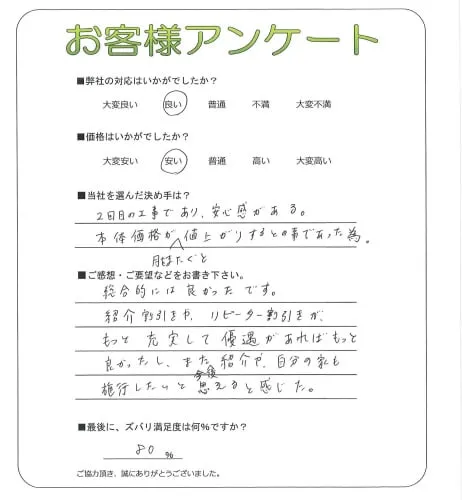 お客様アンケート
■弊社の対応はいかがでしたか？
大変良い 良い 普通 不満 大変不満
■価格はいかがでしたか？
大変安い 安い 普通 高い 大変高い
■当社を選んだ決め手は？
2回目の工事であり、安心感がある。
本体価格が値上がりするとの事であった為。
月をまたぐと
■ご感想・ご要望などをお書き下さい。
総合的には良かったです。
紹介割引きや、リピーター割引きが、
もっと充実して優遇があればもっと
良かったし、また紹介や、自分の家も
今後
施行したいと思えると感じた。
■最後に、ズバリ満足度は何％ですか？
80 %
ご協力頂き、誠にありがとうございました。